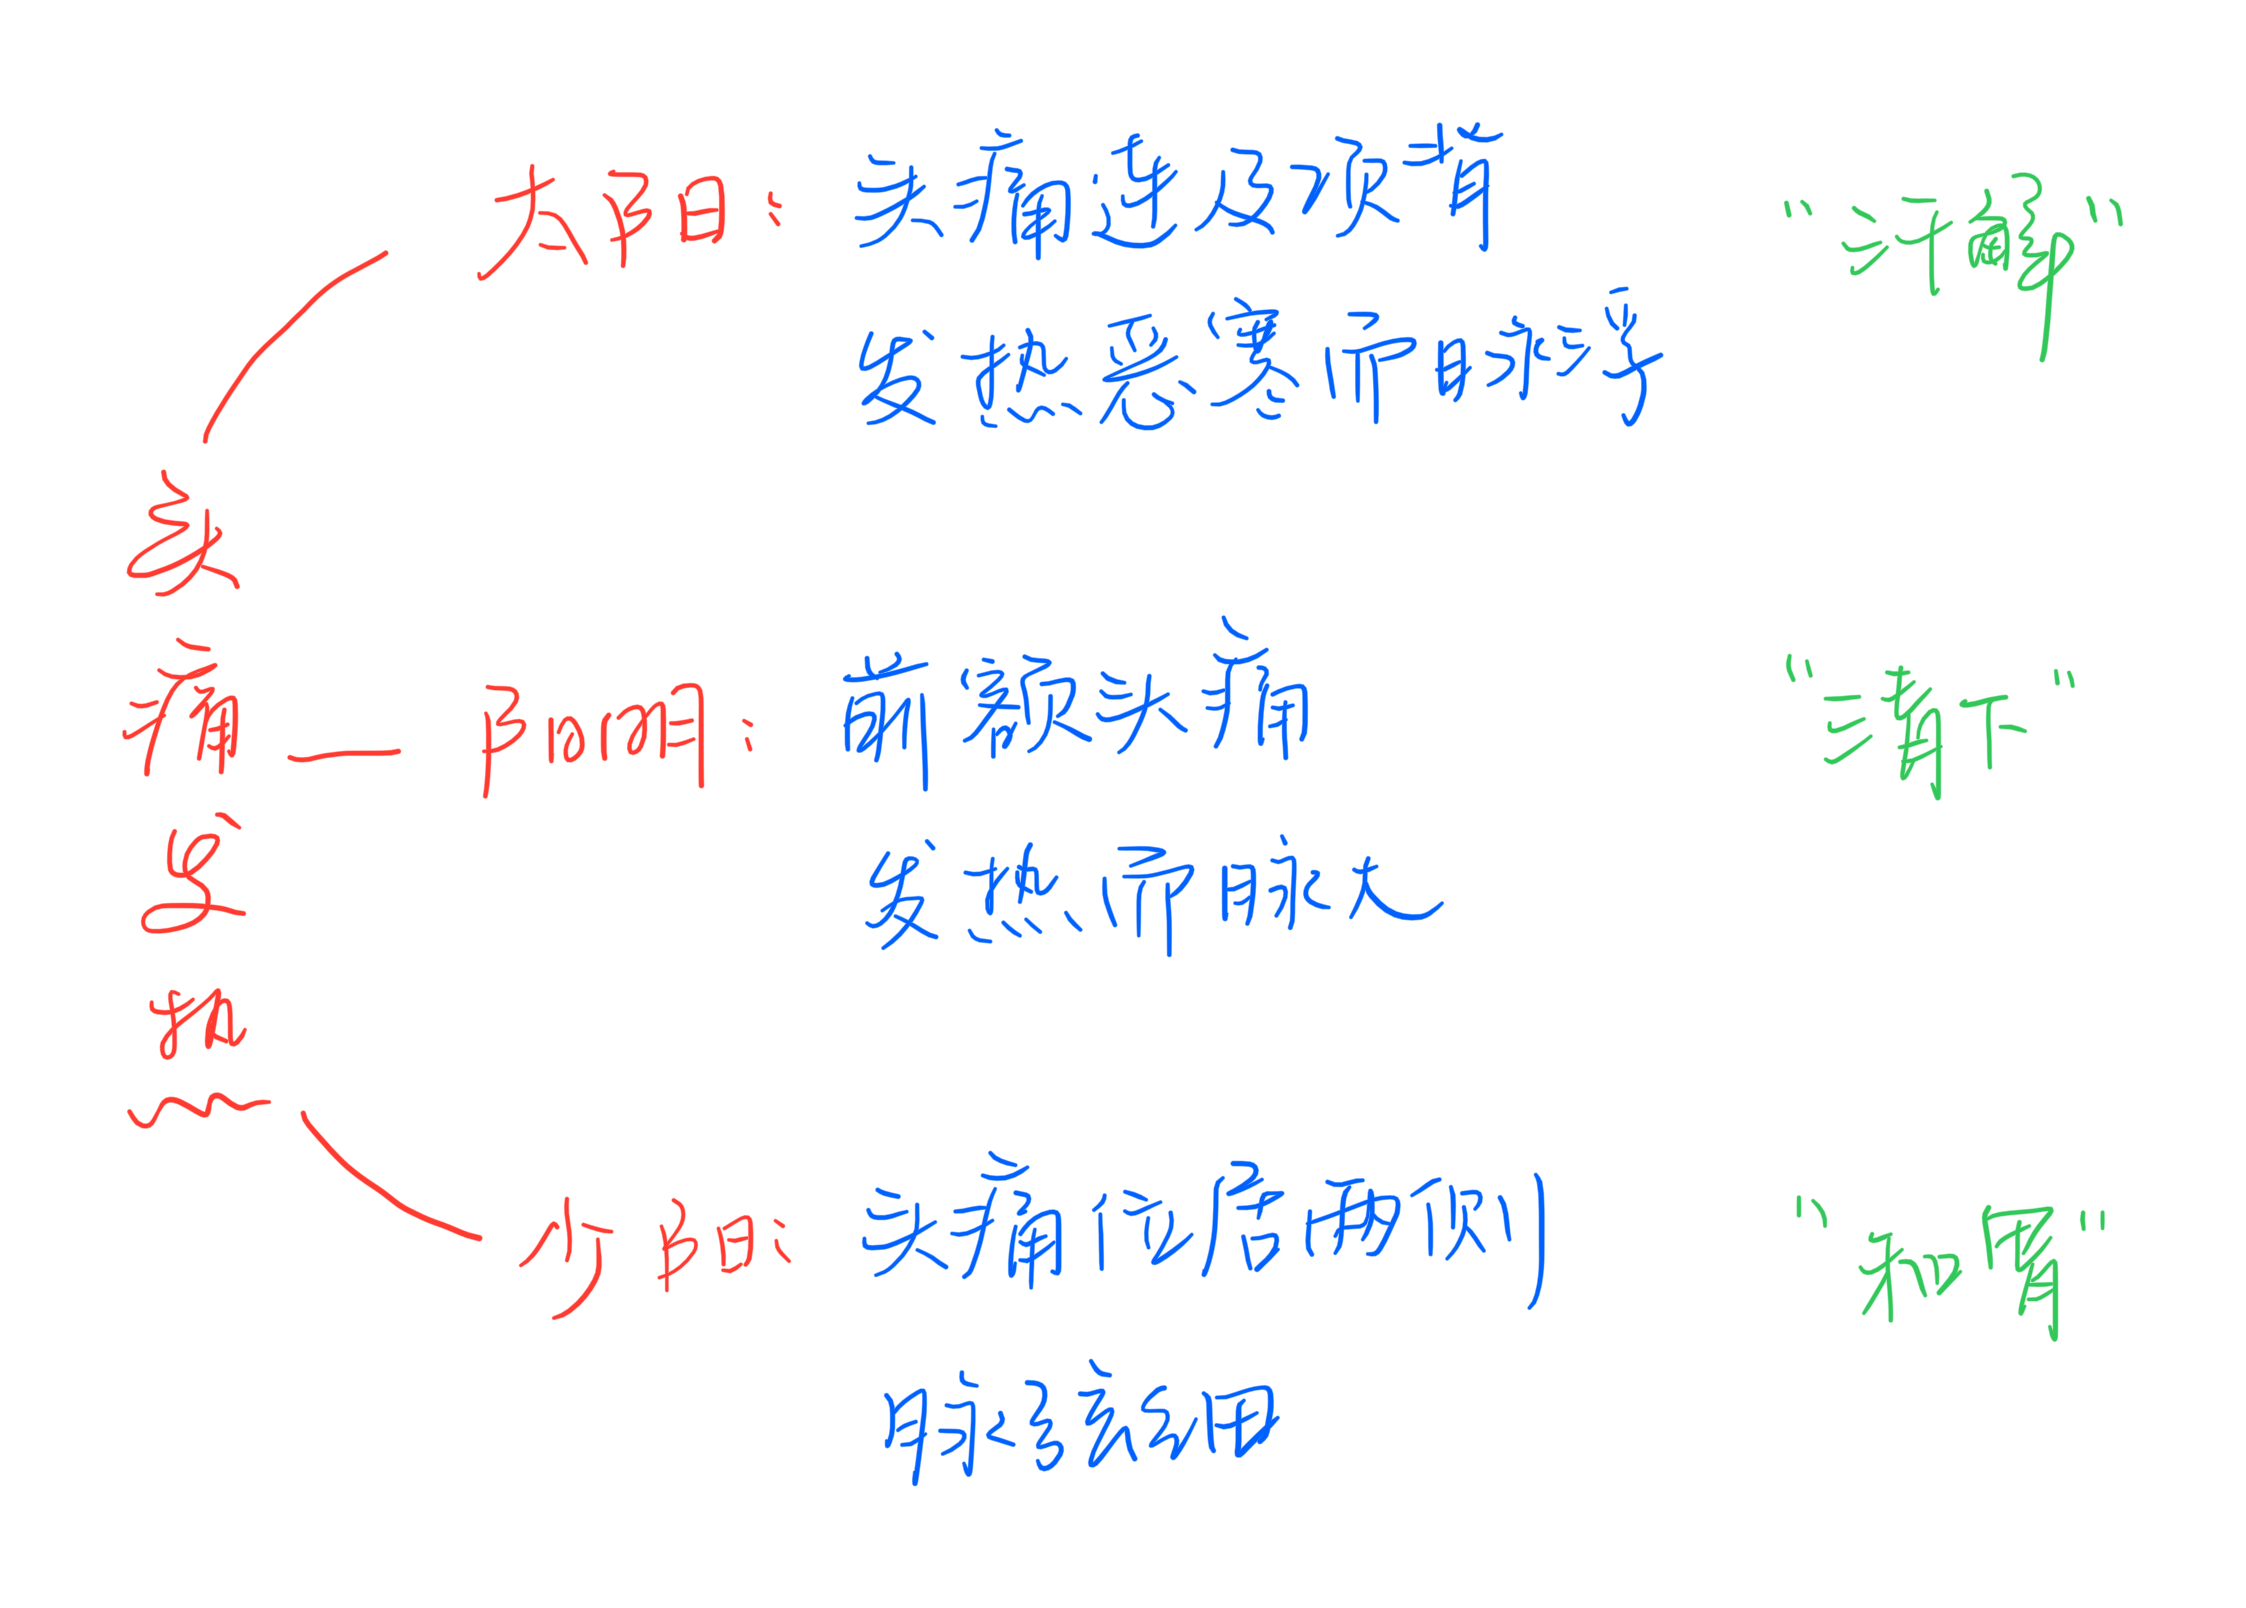 头痛发热
太阳:
头痛连及项背
发热恶寒而脉浮
"汗解"
阳明:
前额头痛
发热而脉大
"清下"
少阳:
头痛位居两侧
脉弦细
"和胃"